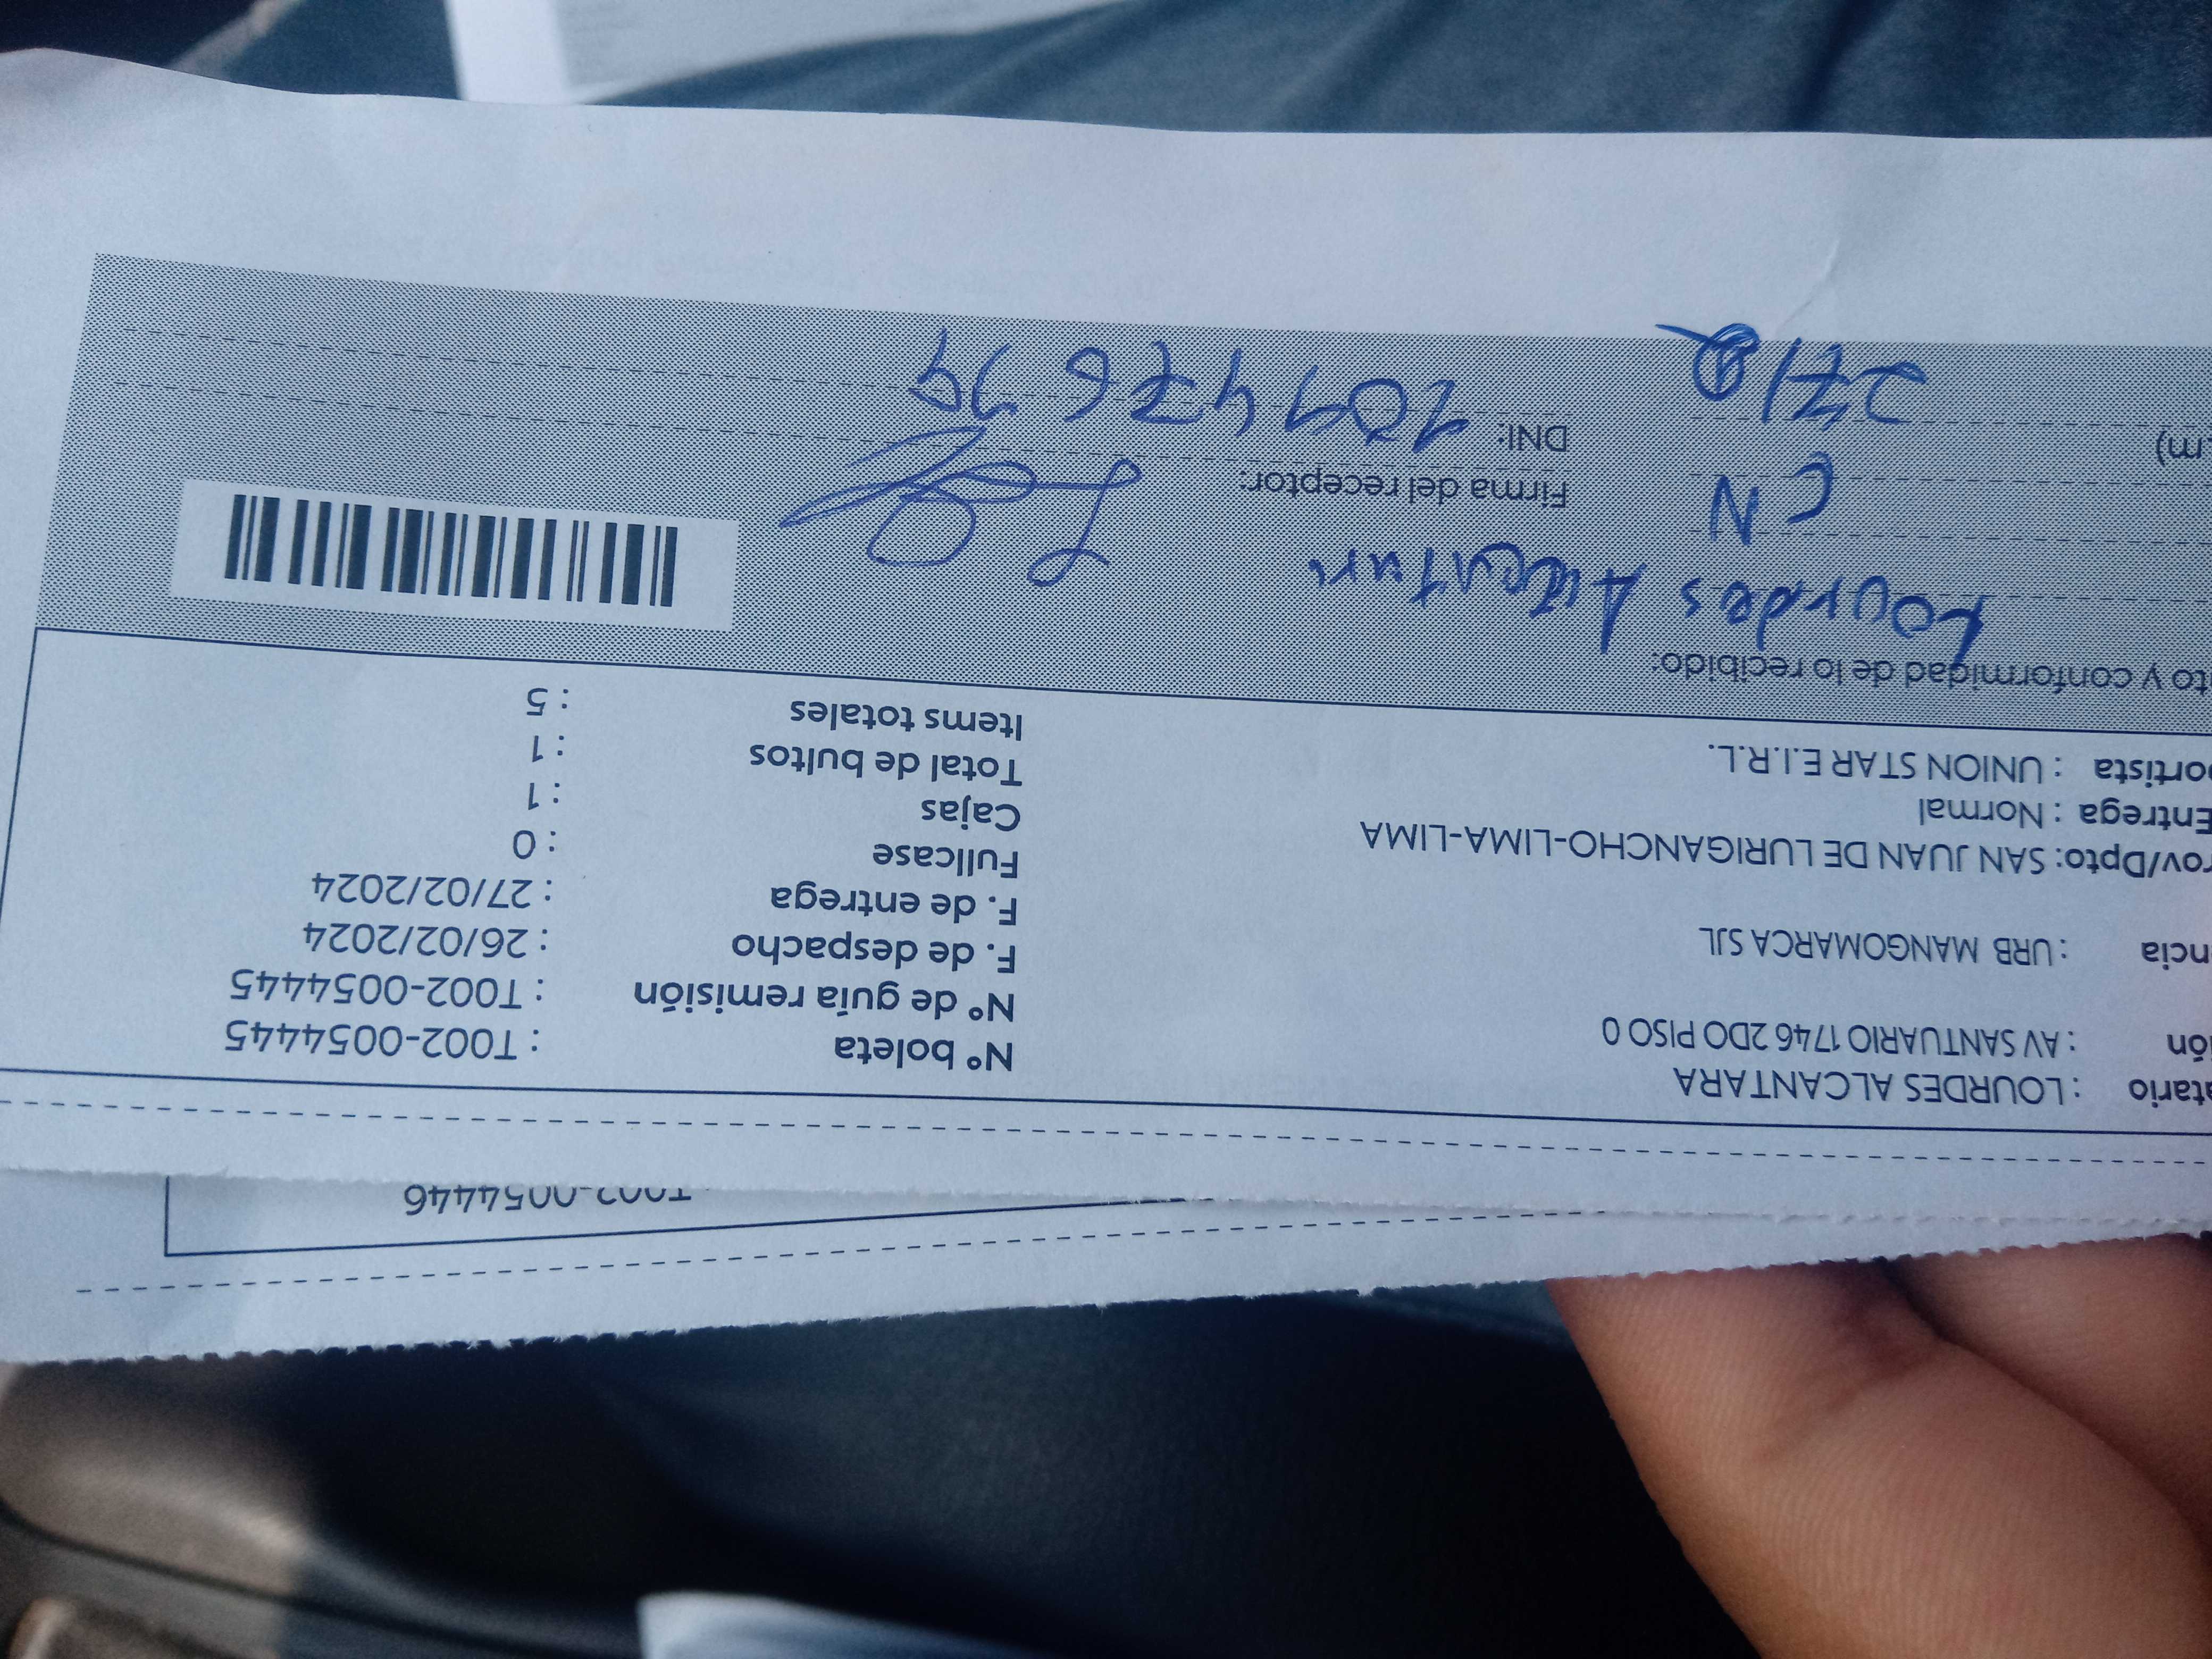 T002-0054446
atario : LOURDES ALCANTARA
ión : AV SANTUARIO 1746 2DO PISO 0
ncia : URB MANGOMARCA SJL
rov/Dpto: SAN JUAN DE LURIGANCHO-LIMA-LIMA
Entrega : Normal
portista : UNION STAR E.I.R.L.
N° boleta : T002-0054445
N° de guía remisión : T002-0054445
F. de despacho : 26/02/2024
F. de entrega : 27/02/2024
Fullcase : 0
Cajas : 1
Total de bultos : 1
Items totales : 5
to y conformidad de lo recibido:
Lourdes
CN
Firma del receptor:
rm) 27/2
DNI: